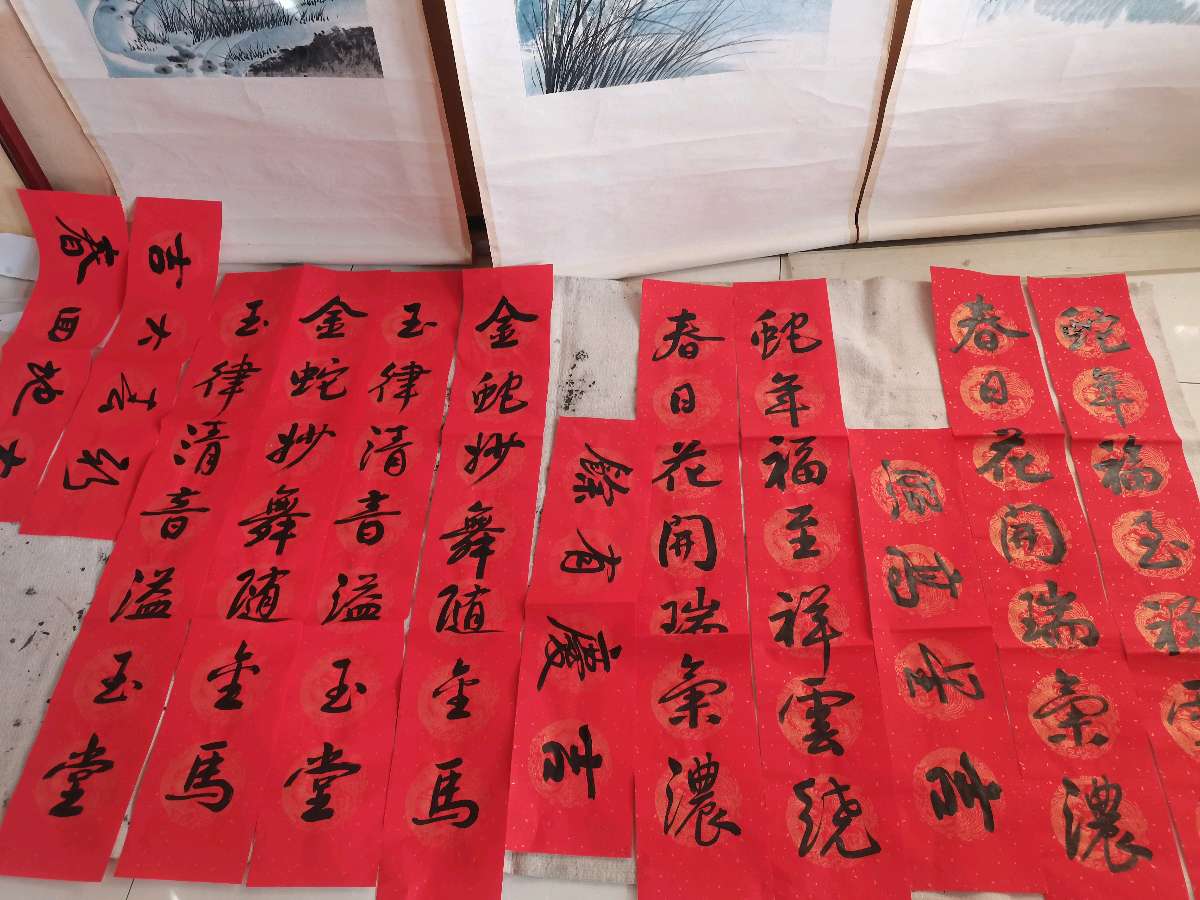 蛇年福至祥雲
春日花開瑞氣濃
蛇年福至祥雲繞
春日花開瑞氣濃
吉慶有餘
金蛇妙舞随金馬
玉律清音溢玉堂
金蛇妙舞随金馬
玉律清音溢玉堂
蛇年大吉
大地回春